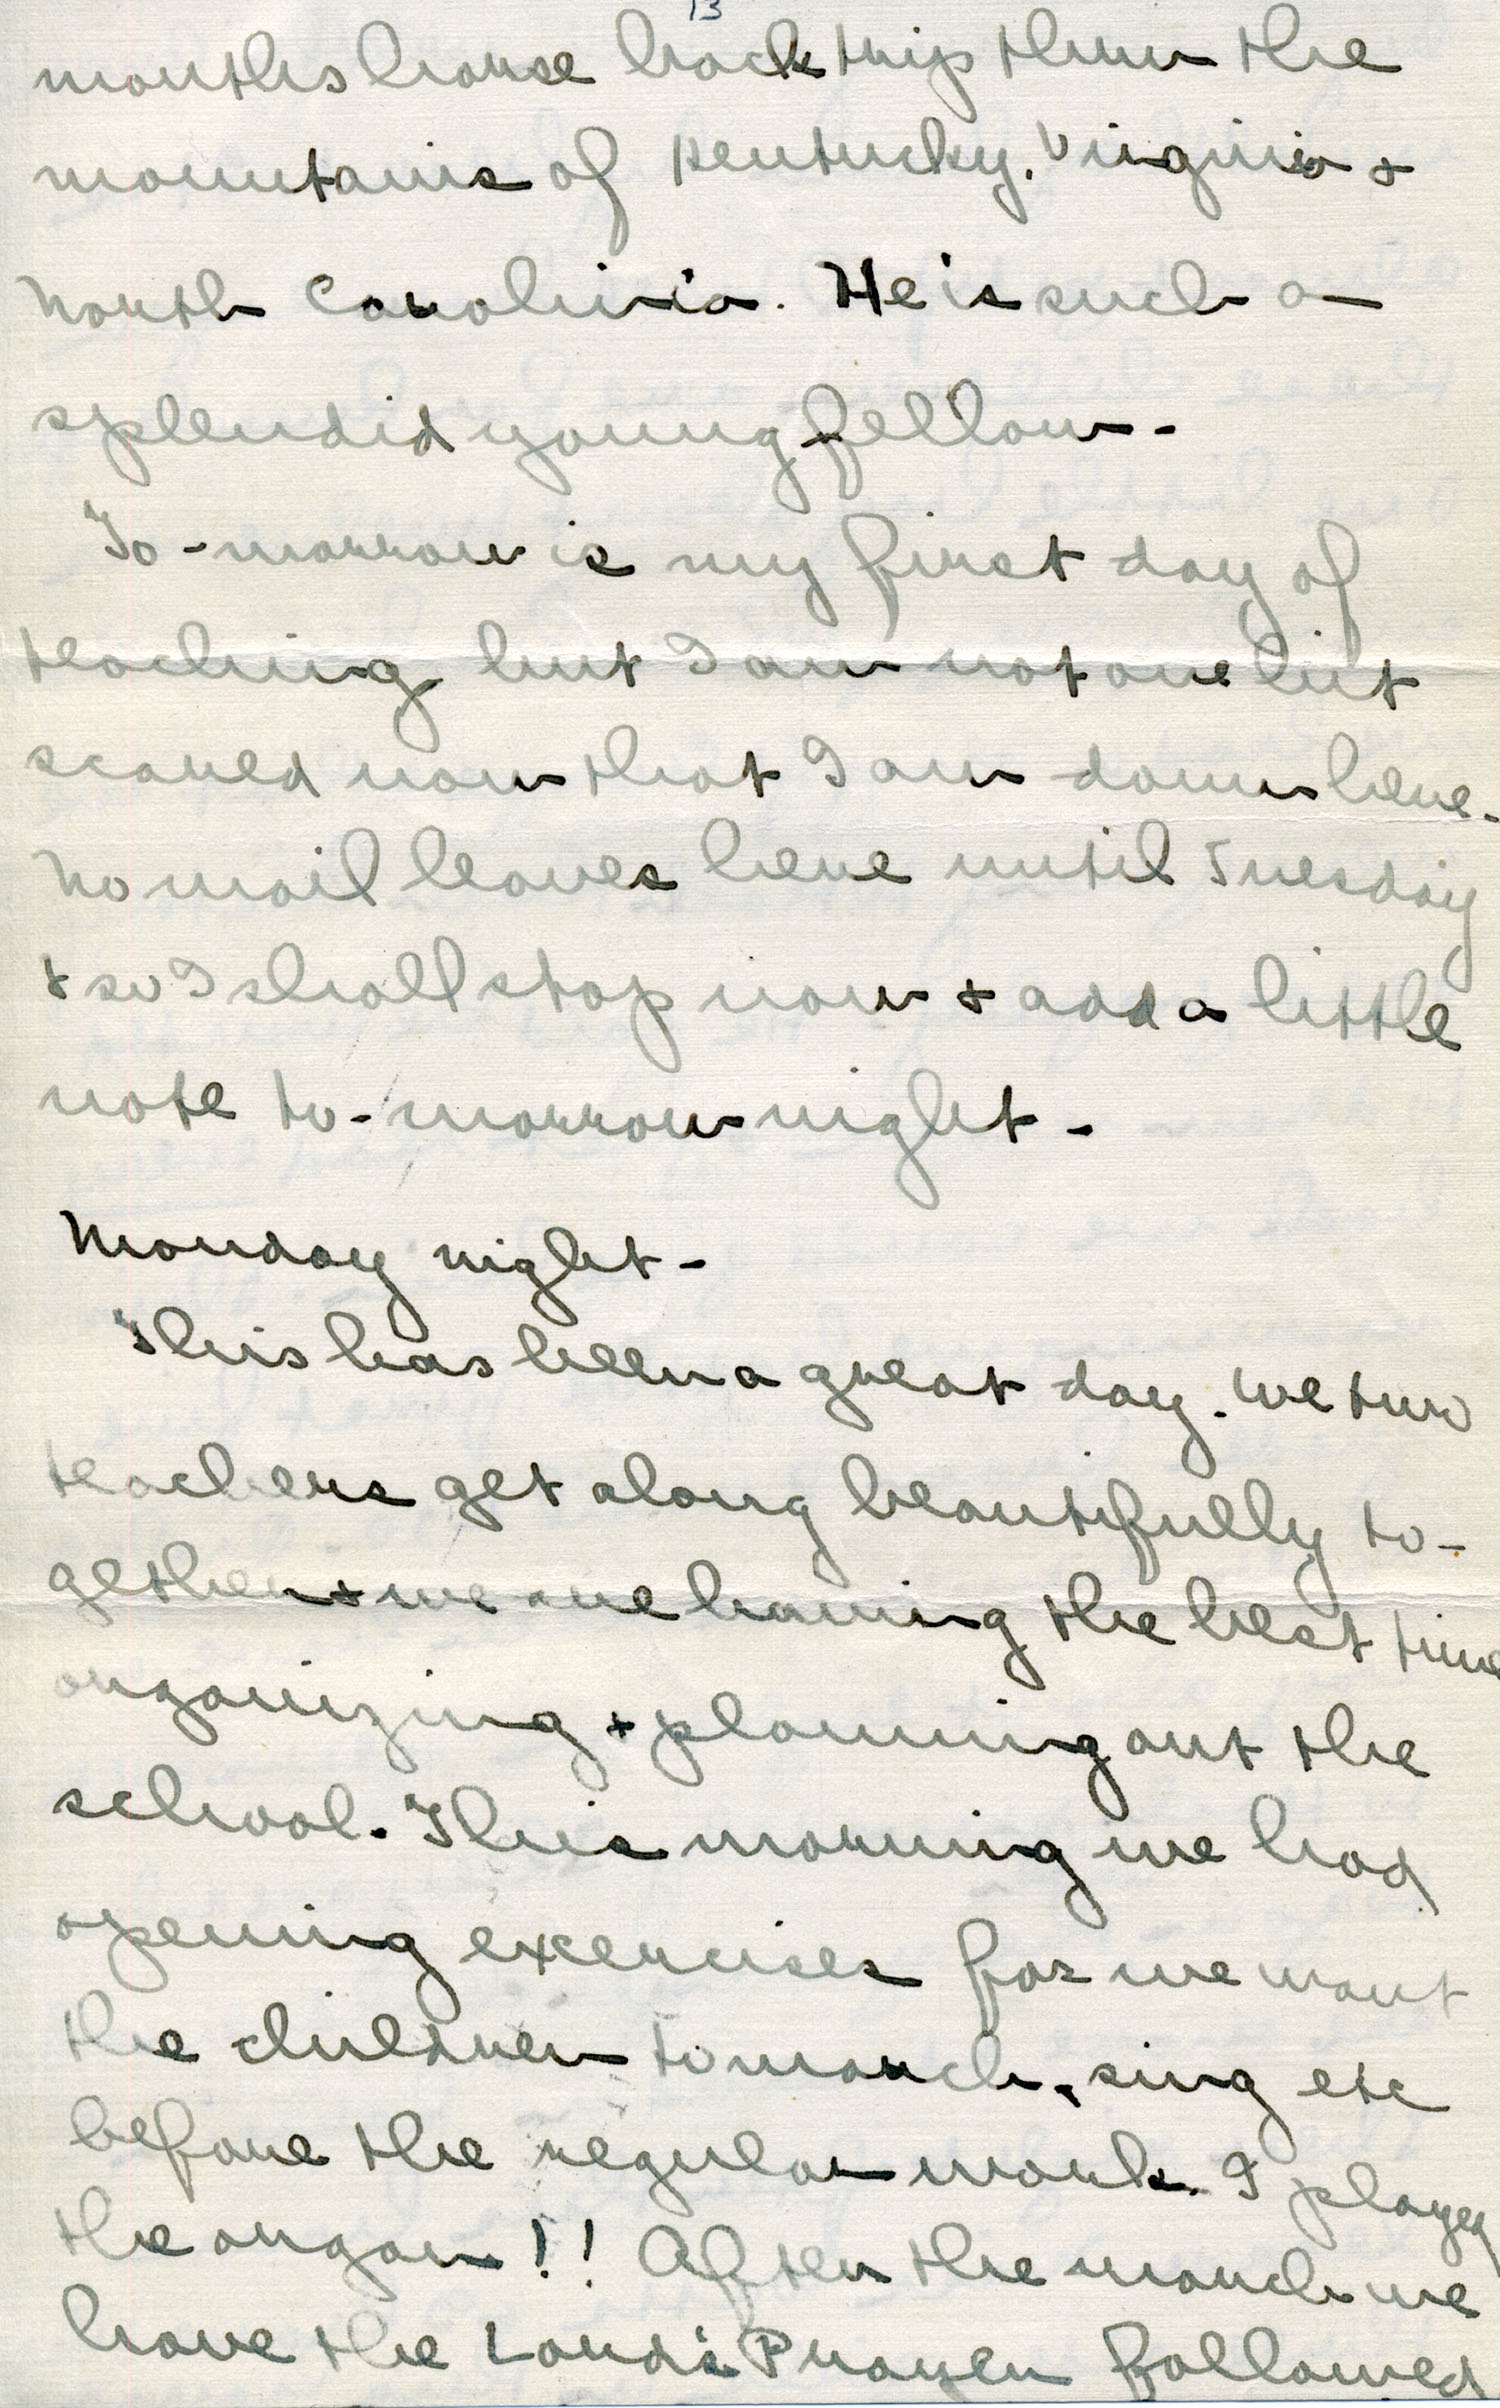 13
months horse back trip thru the
mountains of Kentucky. Virginia &
North Carolinia. He is such a
splendid young fellow -
To-morrow is my first day of
teaching but I am not one bit
scared now that I am down here.
No mail leaves here until Tuesday
& so I shall stop now & add a little
note to-morrow night -
Monday night -
This has been a great day. We two
teachers get along beautifully to-
gether & we are having the best time
organizing & planning out the
school. This morning we had
opening exercises for we want
the children to march, sing etc
before the regular work. I played
the organ!! After the march we
have the Lord's Prayer followed